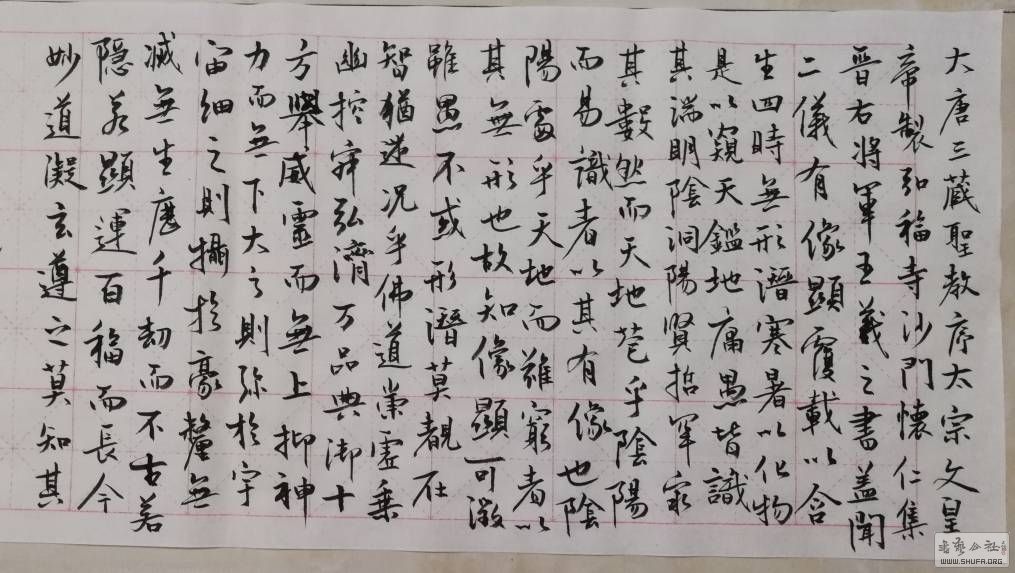 大唐三藏聖教序太宗文皇
帝製弘福寺沙門懷仁集
晉右將軍王羲之書蓋聞
二儀有像顯覆載以含
生四時無形潛寒暑以化物
是以窺天鑑地庸愚皆識
其端明陰洞陽賢哲罕窮
其數然而天地苞乎陰陽
而易識者以其有像也陰
陽處乎天地而難窮者以
其無形也故知像顯可徵
雖愚不或形潛莫覩在
智猶迷況乎佛道崇虛乘
幽控寂弘濟万品典御十
方舉威靈而無上抑神
力而無下大之則彌於宇
宙細之則攝於豪釐無
滅無生歷千劫而不古若
隱若顯運百福而長今
妙道凝玄遵之莫知其
书艺公社
WWW.SHUFA.ORG